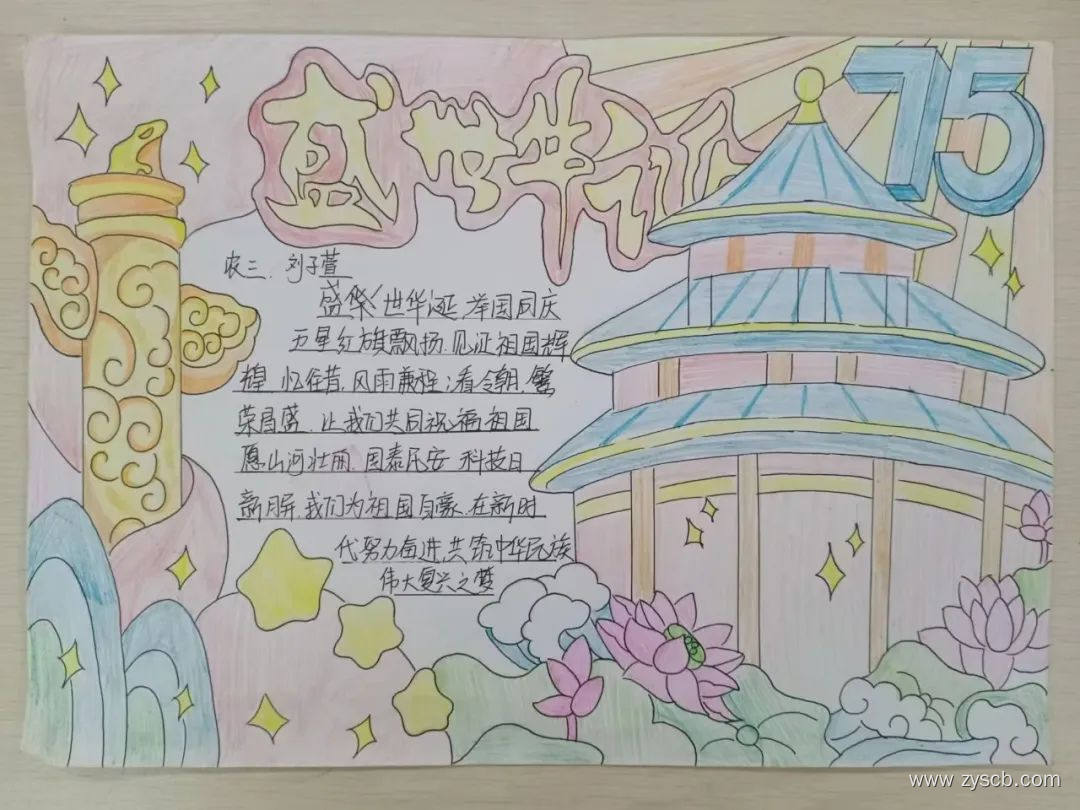 盛世华诞
75
农三、刘子萱
盛华世华诞 举国同庆
五星红旗飘扬、见证祖国辉
煌 忆往昔、风雨兼程；看今朝、繁
荣昌盛、让我们共同祝福祖国
愿山河壮丽、国泰民安 科技日
新月 我们为祖国自豪、在新时
代努力奋进、共 中华民族
伟大复兴之梦
www.zyscb.com